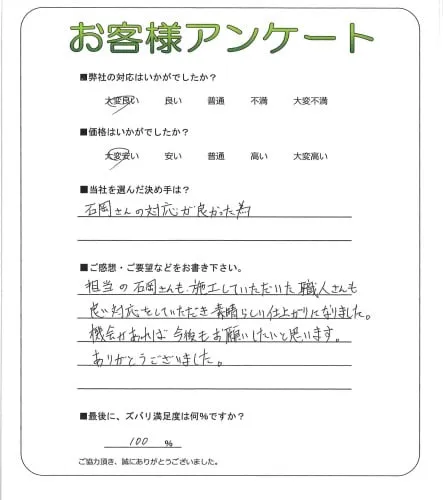 お客様アンケート
■弊社の対応はいかがでしたか？
大変良い 良い 普通 不満 大変不満
■価格はいかがでしたか？
大変安い 安い 普通 高い 大変高い
■当社を選んだ決め手は？
石岡さんの対応が良かった為
■ご感想・ご要望などをお書き下さい。
担当の石岡さんも、施工していただいた職人さんも
良い対応をしていただき素晴らしい仕上がりになりました。
機会があれば今後もお願いしたいと思います。
ありがとうございました。
■最後に、ズバリ満足度は何％ですか？
100 ％
ご協力頂き、誠にありがとうございました。